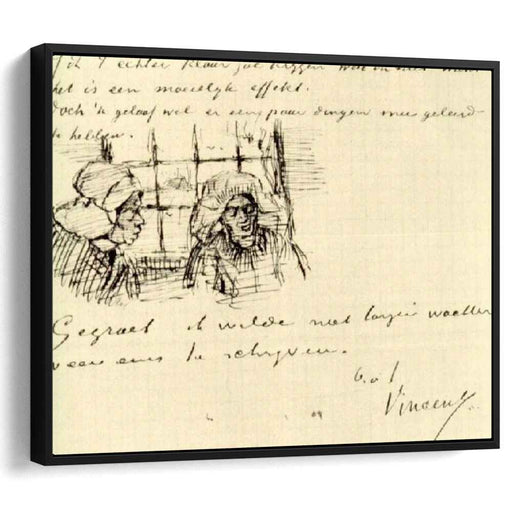 ik 't echter klaar zal krijgen
het is een moeielyk effekt.
Doch 'k geloof wel er een paar dingen mee geleerd
te hebben.
Gegroet ik wilde niet langer wachten
weer eens te schryven.
b.à.t.
Vincent